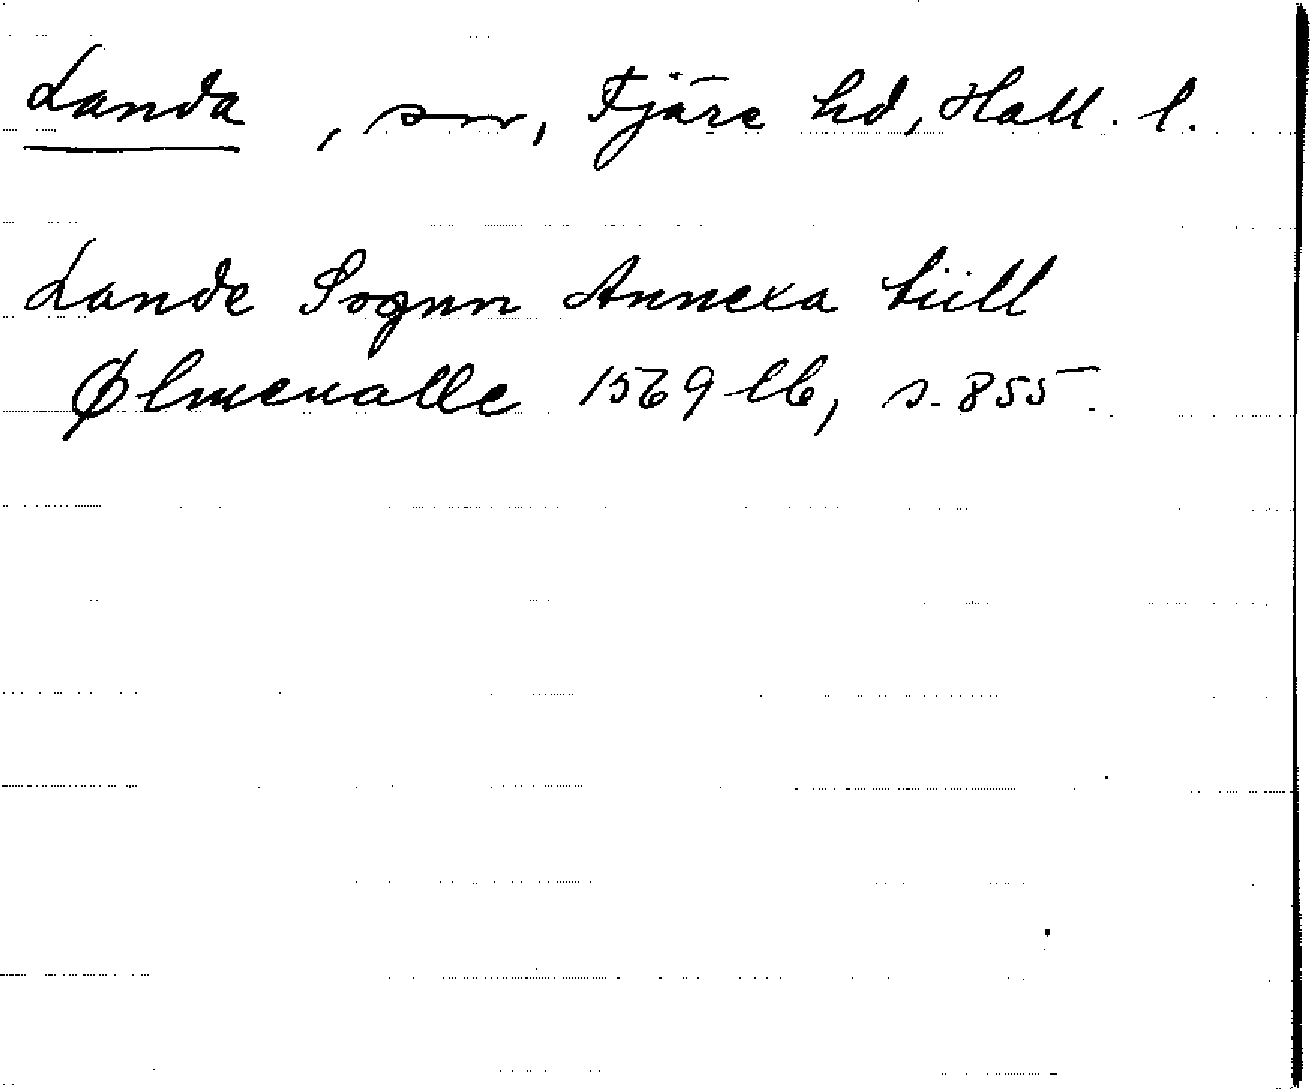 Landa, sn, Fjäre hd, Hall. l.
Lande Sognn Annexa tiill
Ølmeualle 1569 lb, s. 855.